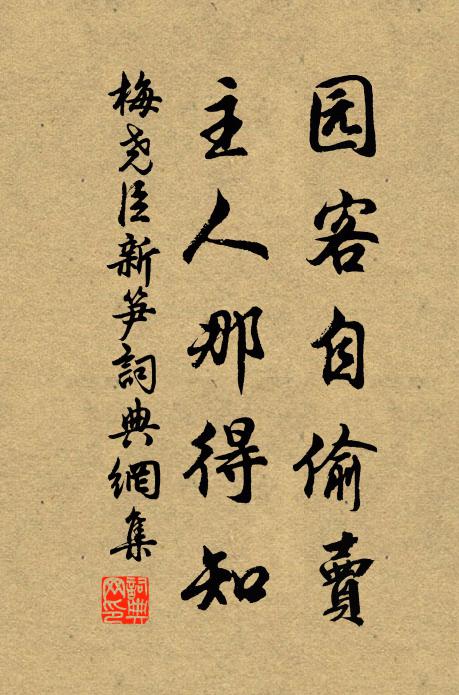 园客自偷賣
主人那得知
梅尧臣新笋詞典網集
詞典网印